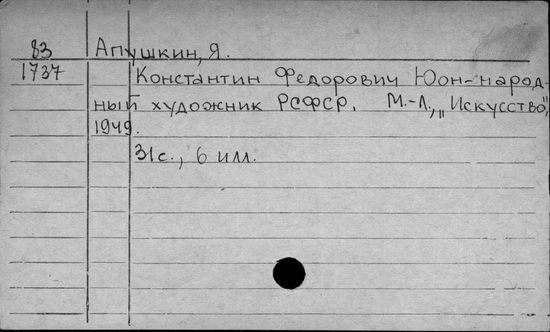 83 Апушкин, Я.
1737 Константин Федорович Юон - народ-
ный художник РСФСР. М.-Л., „Искусство",
1949.
31 с., 6 илл.